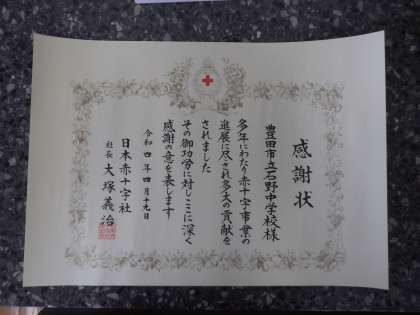 感謝状
豊田市立石野中学校様
多年にわたり赤十字事業の
進展に尽され多大の貢献を
されました
その御功労に対しここに深く
感謝の意を表します
令和四年四月十九日
日本赤十字社
社長 大塚義治